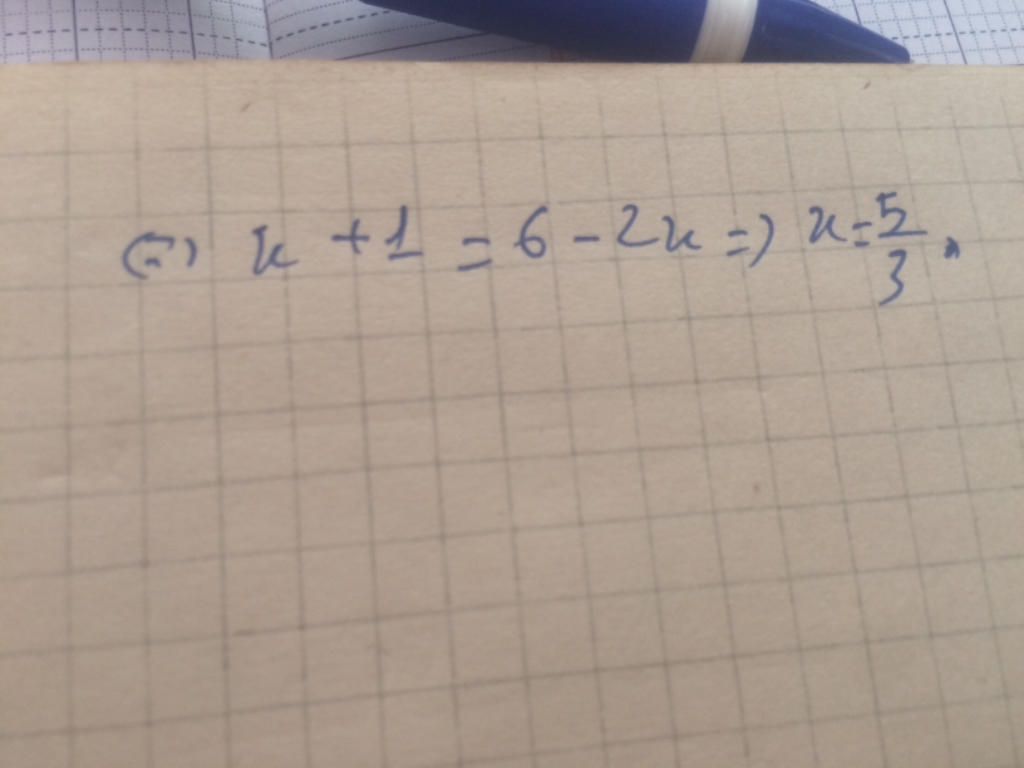 (=) x + 1 = 6 - 2x => x = 5/3.